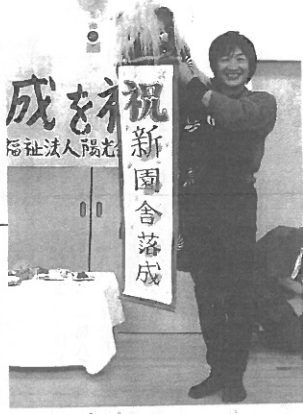 成を祝
福祉法人陽光
祝新園舎落成